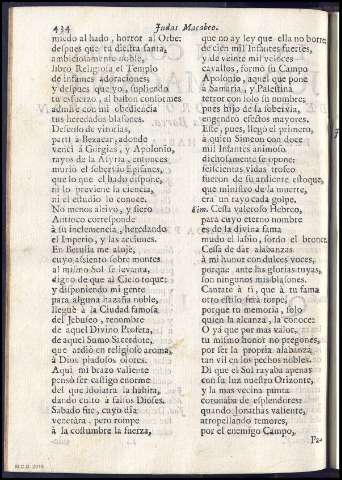 434 Judas Macabeo.
miedo al hado, horror al Orbe:
despues que tu diestra santa,
ambiciosamente noble,
libro Religiosa el Templo
de infames adoraciones;
y despues que yo, supliendo
tu esfuerzo, al baston conformes
admire con mi obediencia
tus heredados blasones.
Deseoso de vitorias,
parti à Bezacar, adonde
venci à Gorgias, y Apolonio,
rayos de la Asyria, entonces
murió el sobervio Epifanes,
que lo que el hado dispone,
ni lo previene la ciencia,
ni el estudio lo conoce.
No menos altivo, y fiero
Antioco corresponde
à su inclemencia, heredando
el Imperio, y las acciones.
En Betulia me aloje,
cuyo assiento sobre montes
al mismo Sol se levanta,
digno de que al Cielo toque:
y disponiendo mi gente
para alguna hazaña noble,
lleguè à la Ciudad famosa
del Jebuseo, renombre
de aquel Divino Profeta,
de aquel Sumo Sacerdote,
que ardió en religioso aroma,
à Dios piadosos olores.
Aqui mi brazo valiente
pensò ser castigo enorme
del que idolatra la habita,
dando culto à falsos Dioses.
Sabado fue, cuyo dia
venerára, pero rompe
à la costumbre la fuerza,
que no ay ley que ella no borre:
de cien mil Infantes fuertes,
y de veinte mil veloces
cavallos, formó su Campo
Apolonio, aquel que pone
à Samaria, y Palestina
terror con solo su nombre;
pues hijo de la sobervia,
engendró efectos mayores.
Este, pues, llegó el primero,
à quien Simeon con doce
mil Infantes animoso
dichosamente se opone;
felicisimas vidas trofeo
fueron de su ardiente estoque,
que ministro de la muerte,
era un rayo cada golpe.
Sim. Cessa valeroso Hebreo,
para cuyo eterno nombre
es de la divina fama
mudo el labio, sordo el bronce.
Cessa de dar alabanzas
à mi honor con dulces voces,
porque ante las glorias tuyas,
son ningunos mis blasones.
Cantate à ti, que à tu fama
otro estilo serà torpe;
porque tu memoria, solo
quien la alcanza, la conoce.
O yà que por mas valor,
tu mismo honor no pregones,
por ser la propria alabanza
tan vil en los pechos nobles.
Di que el Sol rayaba apenas
con su luz nuestro Orizonte,
y la mas vecina punta
coronaba de esplendores:
quando Jonathàs valiente,
atropellando temores,
por el enemigo Campo,